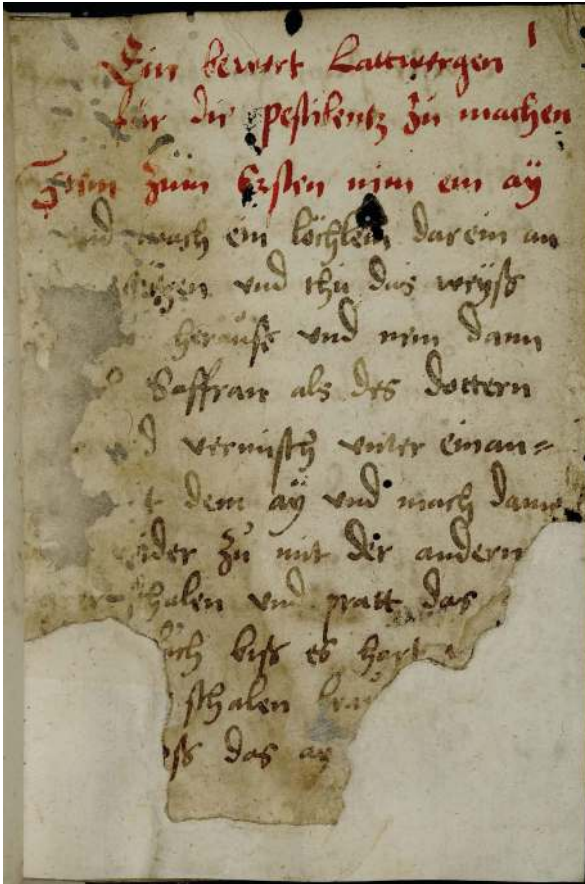 1
Ein bewert Lattwergen
für die pestilentz zu machen
Item zum Ersten nim ein aÿ
vnd mach ein löchlein darein an
spitzen vnd thu das weÿß
herauß vnd nim dann
Saffran als des dottern
d vermisch vnter einan=
t dem aÿ vnd mach dann
wider zu mit der andern
schalen vnd pratt das
biß es hart
schalen
das aÿ